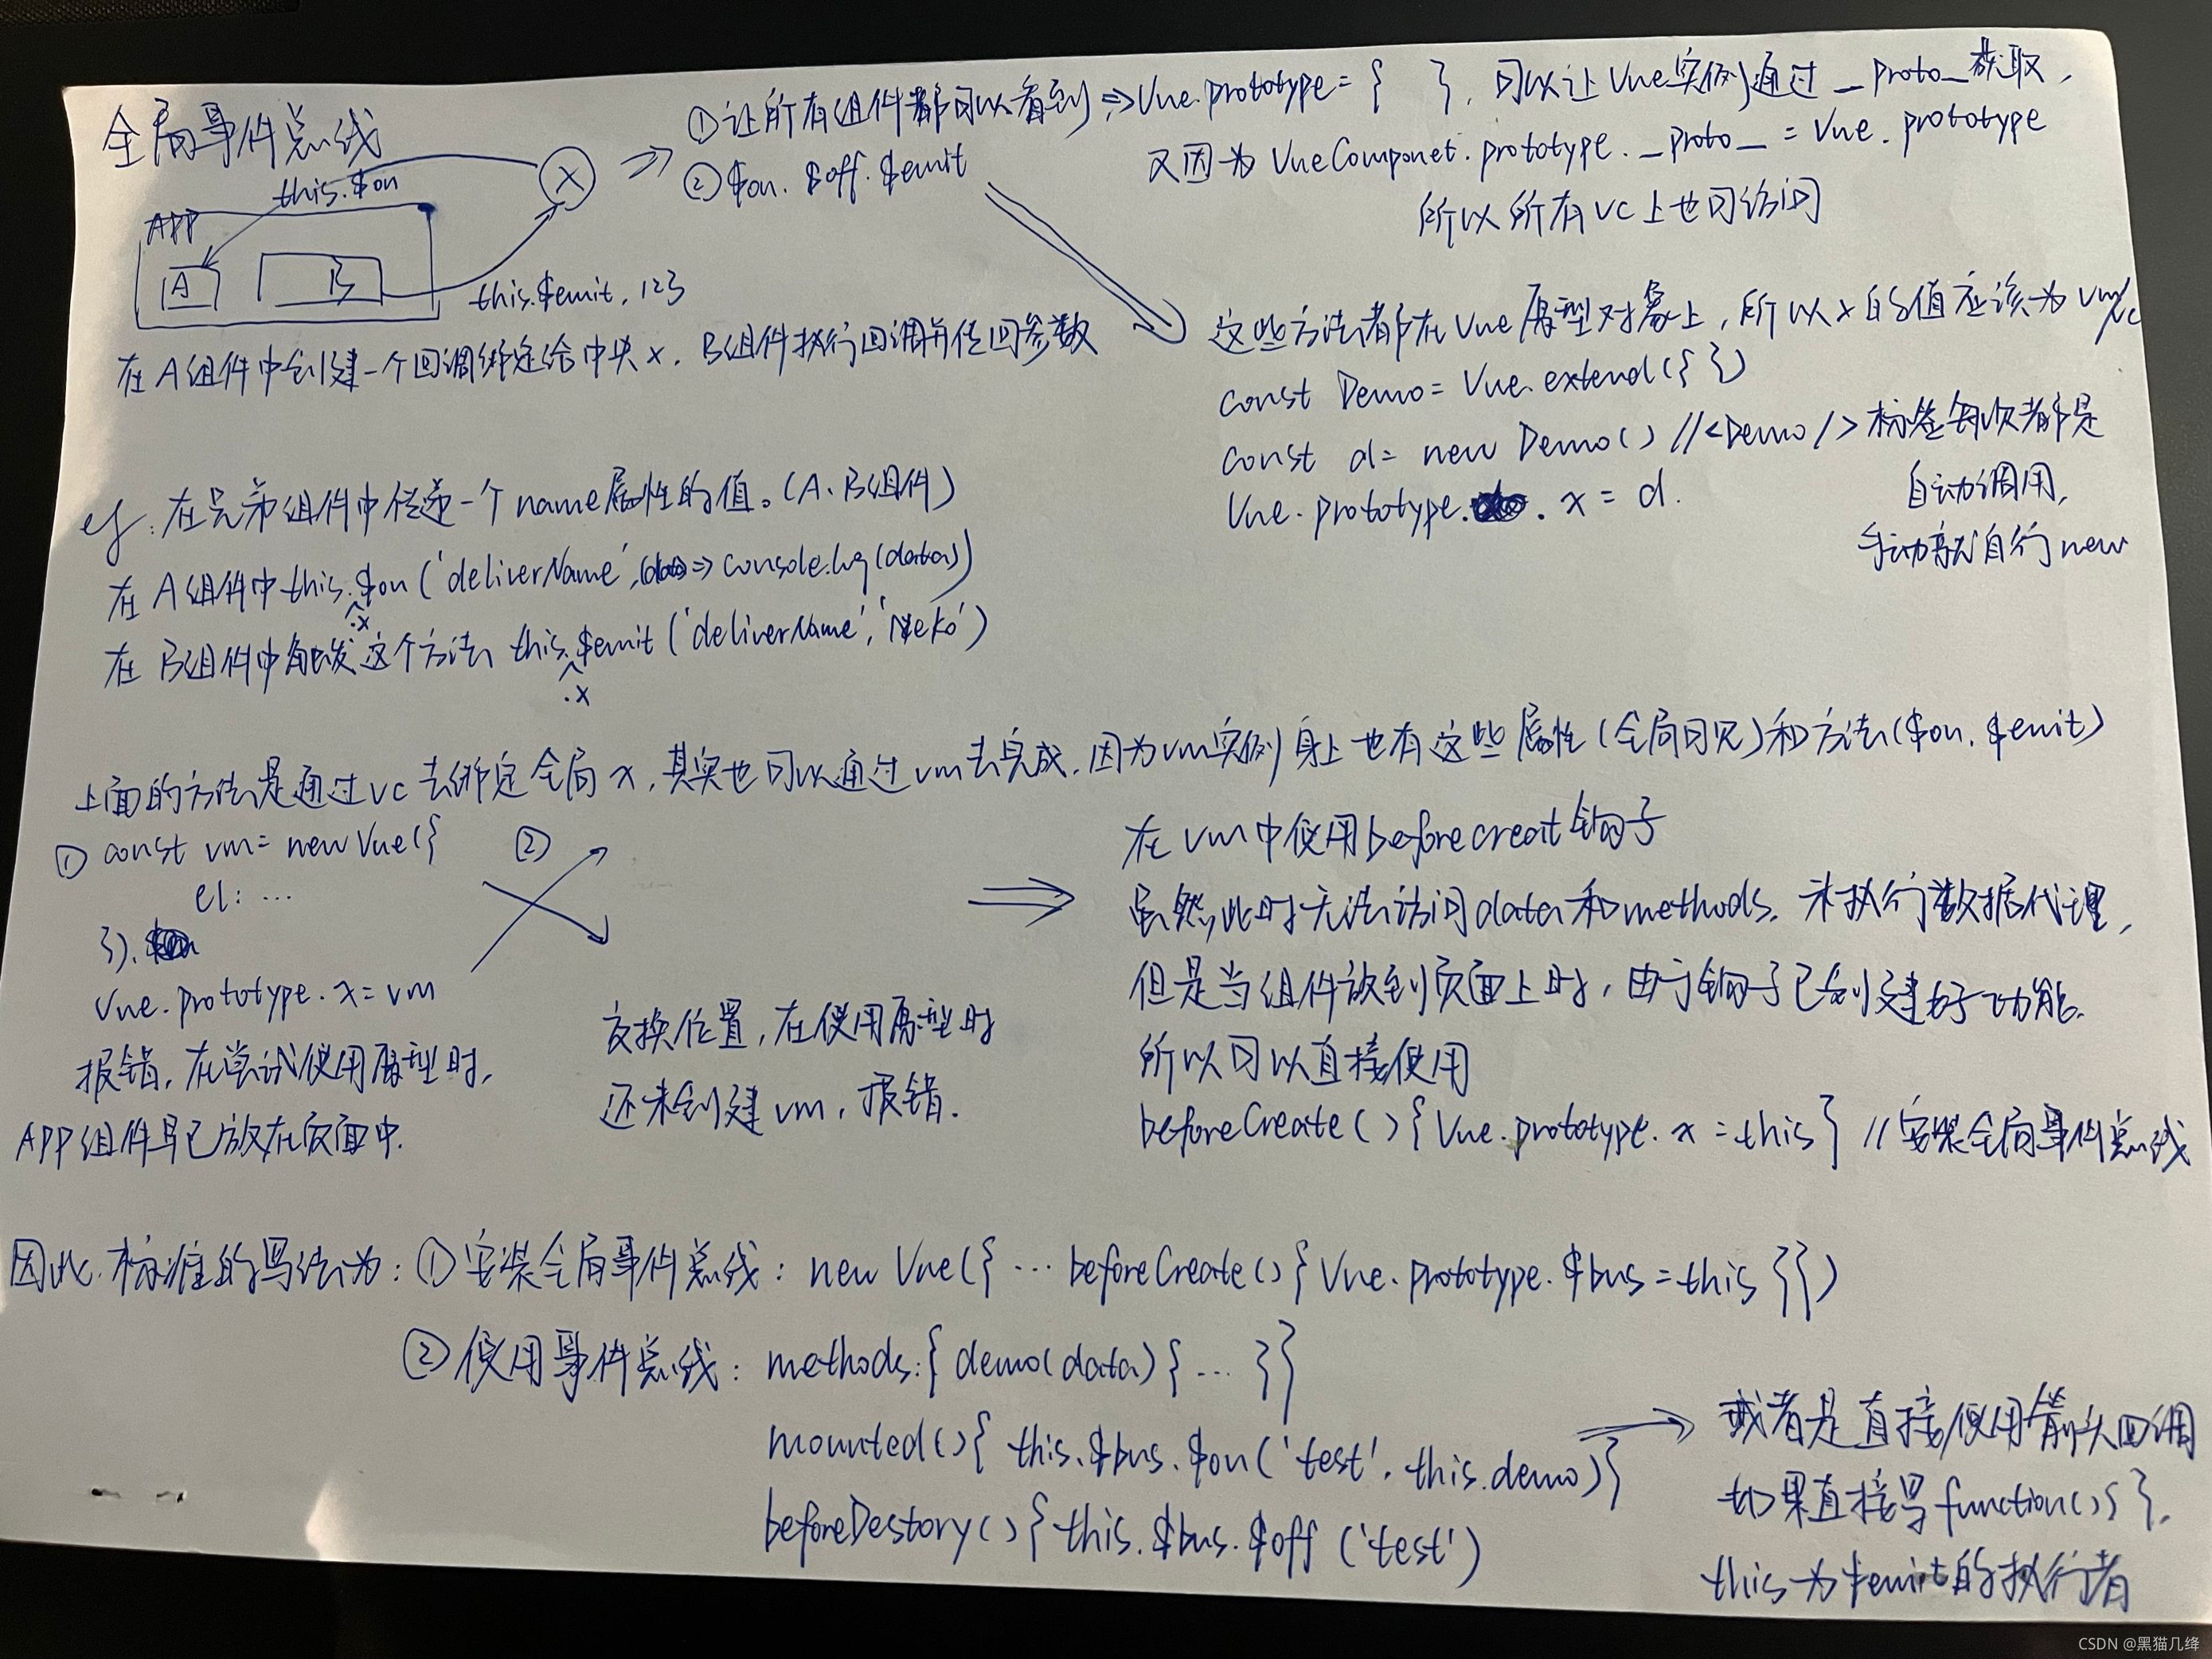 全局事件总线
this.$on
X
APP
A
B
this.$emit, 123
在A组件中创建一个回调绑定给中央x, B组件执行回调并传回参数
①让所有组件都可以看到 ⇒ Vue.prototype = { }, 可以让Vue实例通过_proto_获取,
又因为 VueComponet.prototype._proto_ = Vue.prototype
所以所有vc上也可访问
②$on. $off. $emit
这些方法都在Vue原型对象上, 所以x的值应该为vm/vc
const Demo = Vue.extend({ })
const d = new Demo() //<Demo/>标签每次都是
自动调用,
手动就自行new
Vue.prototype.x = d.
eg: 在兄弟组件中传递一个name属性的值。(A、B组件)
在A组件中this.$on('deliverName',(data)=>console.log(data))
.x
在B组件中触发这个方法 this.$emit('deliverName','Neko')
.x
上面的方法是通过vc去绑定全局x, 其实也可以通过vm去完成, 因为vm实例身上也有这些属性(全局可见)和方法($on, $emit)
① const vm = new Vue({
el: ...
}).
Vue.prototype.x = vm
报错, 在尝试使用原型时,
APP组件早已放在页面中.
②
交换位置, 在使用原型时
还未创建vm, 报错.
⇒
在vm中使用beforecreat钩子
虽然此时无法访问data和methods, 未执行数据代理,
但是当组件放到页面上时, 由于钩子已创建好功能.
所以可以直接使用
beforeCreate(){Vue.prototype.x=this} //安装全局事件总线
因此, 标准的写法为: ①安装全局事件总线: new Vue({ ... beforeCreate(){Vue.prototype.$bus=this}})
②使用事件总线: methods:{demo(data){...}}
mounted(){this.$bus.$on('test', this.demo)}
beforeDestory(){this.$bus.$off('test')
或者是直接使用箭头回调
如果直接写function(){},
this为$emit的执行者
CSDN @黑猫几绛